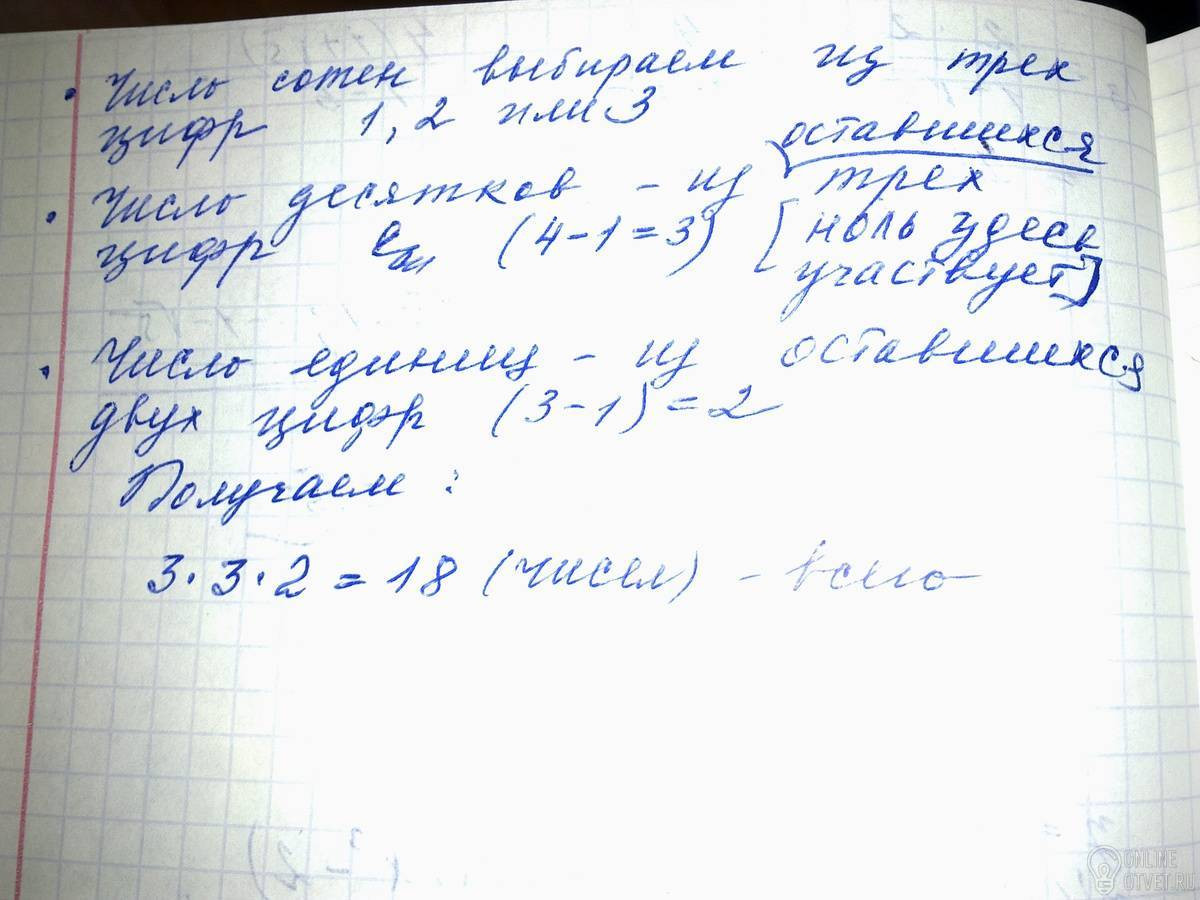 • Число сотен выбираем из трех
цифр 1, 2 или 3
оставшихся
• Число десятков – из трех
цифр (4-1=3) [ноль здесь
участвует]
• Число единиц – из оставшихся
двух цифр (3-1)=2
Получаем:
3·3·2=18 (чисел) – всего
ONLINE
OTVET.RU